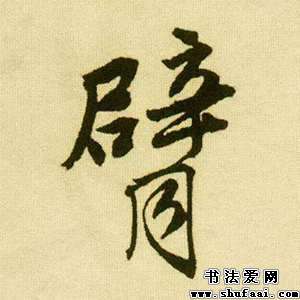 臂
书法爱网
www.shufaai.com